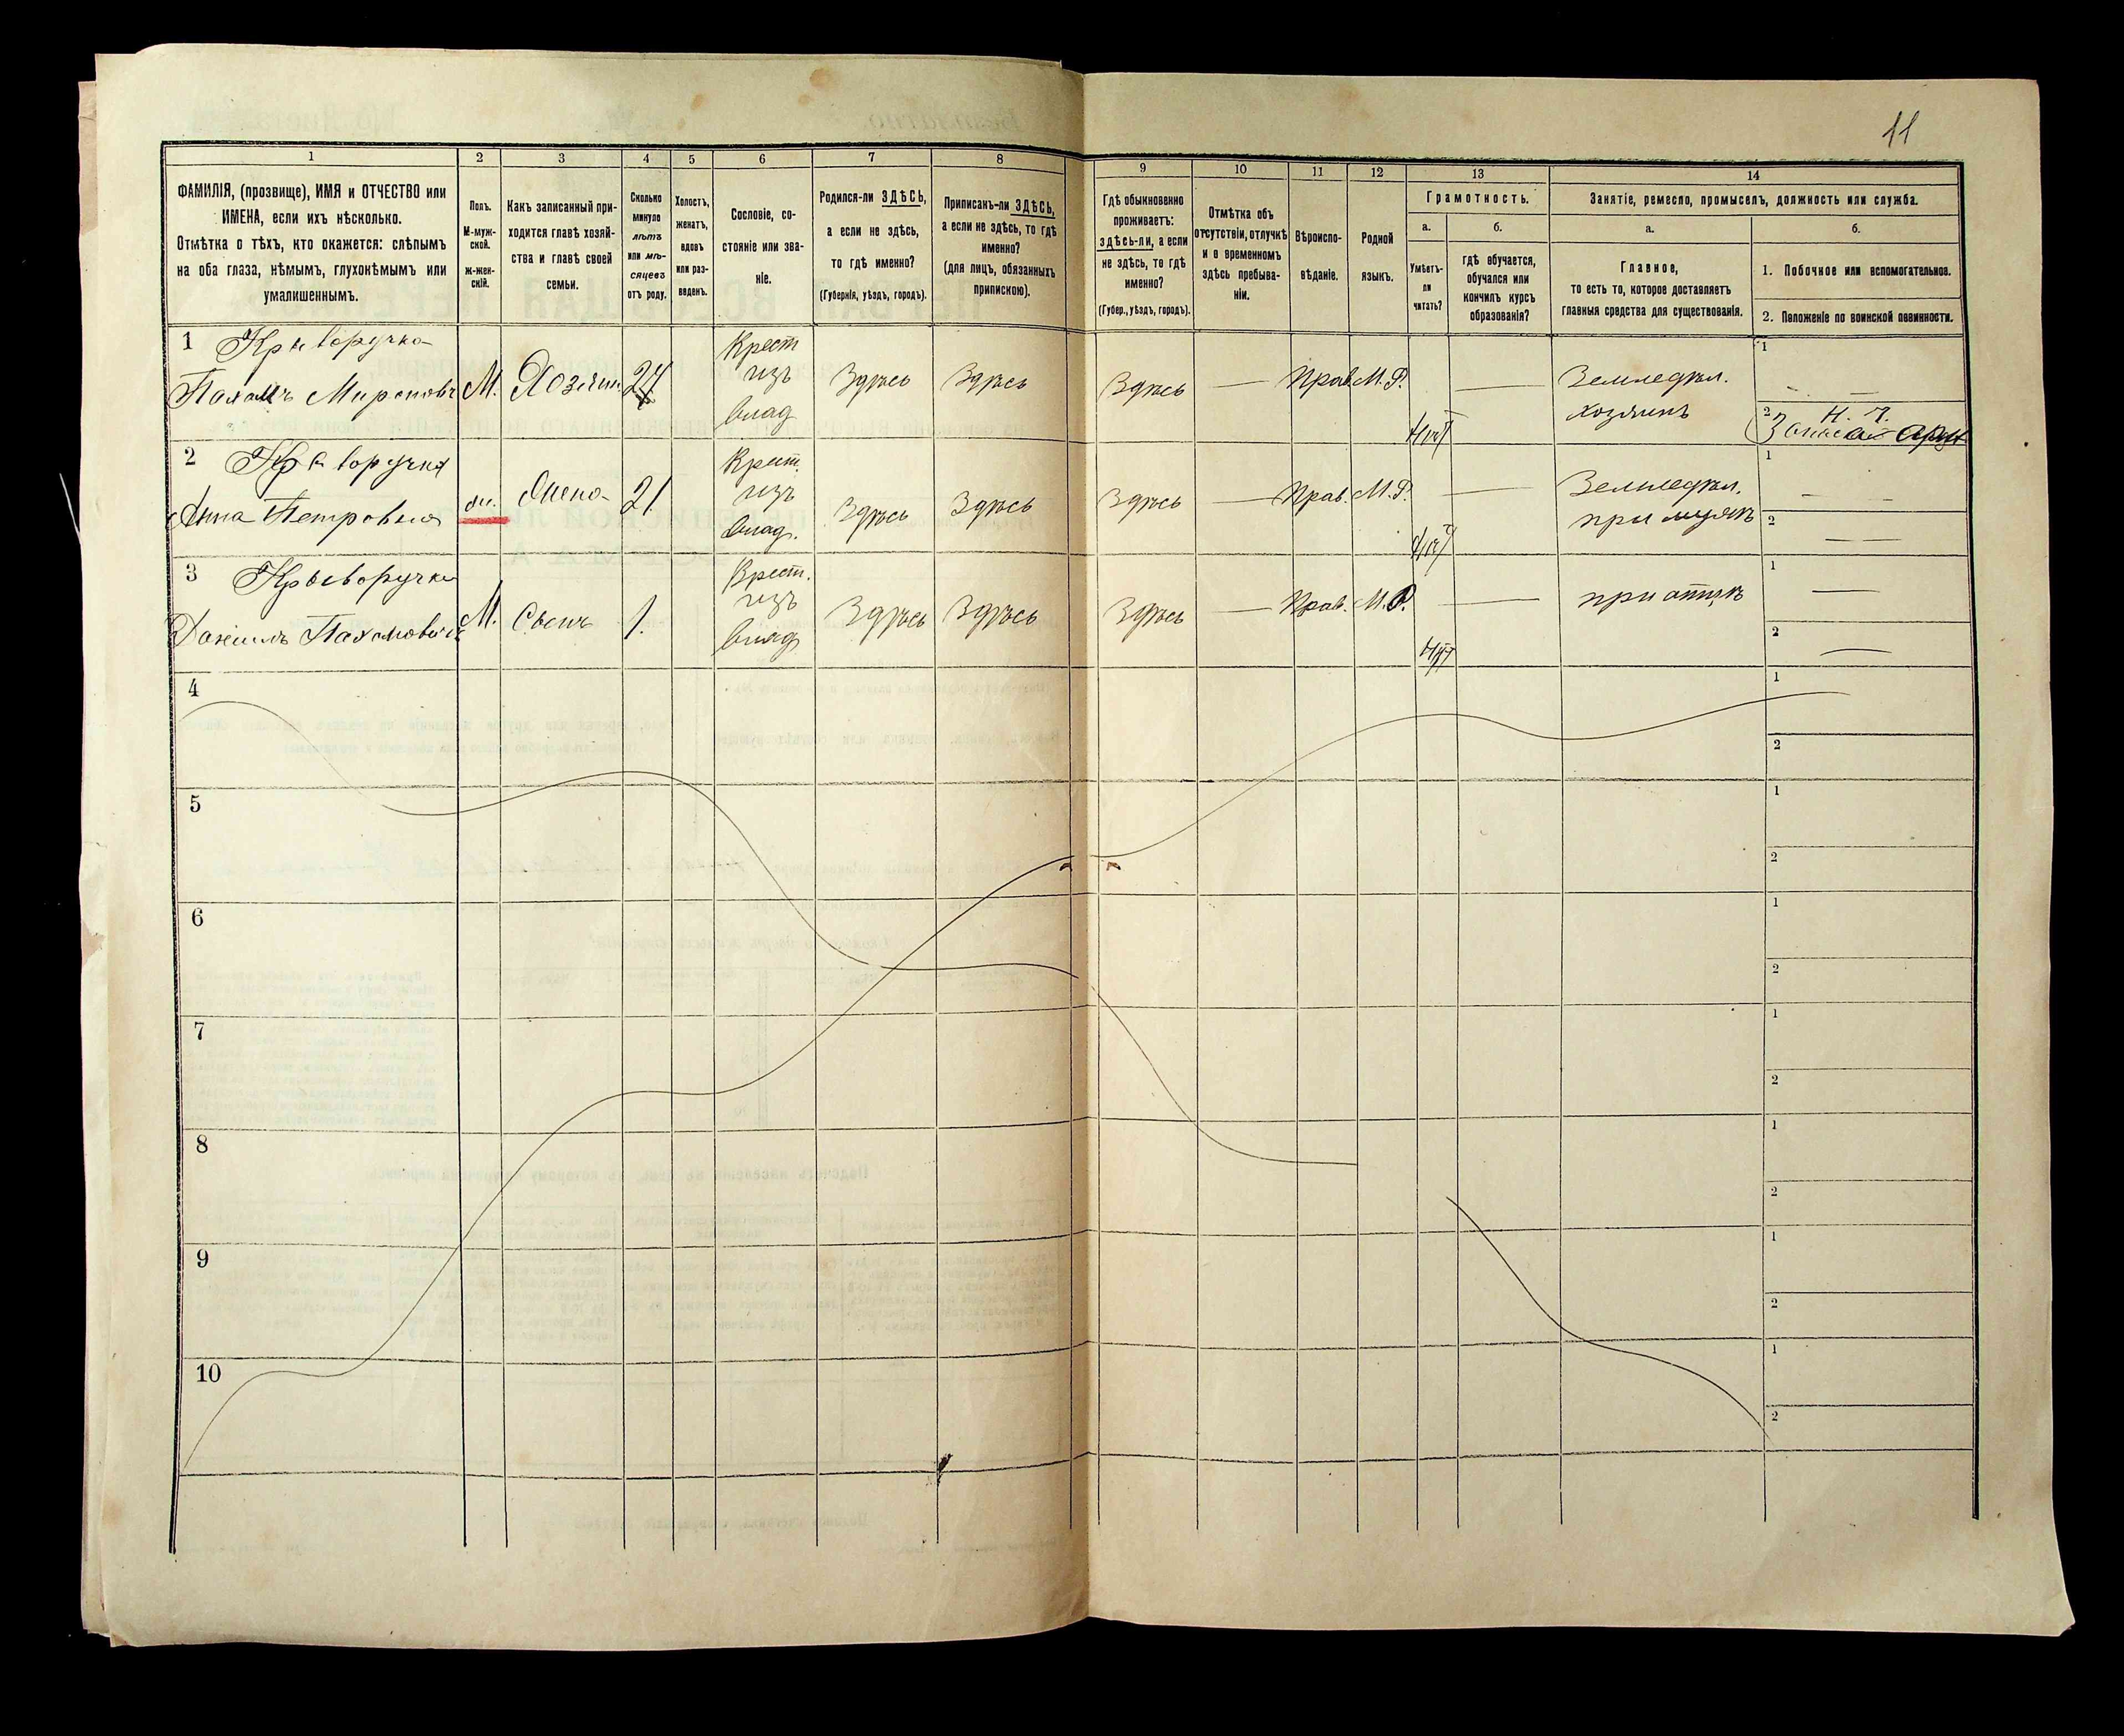 11
1
2
3
4
5
6
7
8
9
10
11
12
13
14
ФАМИЛІЯ, (прозвище), ИМЯ и ОТЧЕСТВО или
ИМЕНА, если ихъ нѣсколько.
Отмѣтка о тѣхъ, кто окажется: слѣпымъ
на оба глаза, нѣмымъ, глухонѣмымъ или
умалишеннымъ.
Полъ.
М-муж-
ской.
Ж-жен-
скій.
Какъ записанный при-
ходится главѣ хозяй-
ства и главѣ своей
семьи.
Сколько
минуло
лѣтъ
или мѣ-
сяцевъ
отъ роду.
Холостъ,
женатъ,
вдовъ
или раз-
веденъ.
Сословіе, со-
стояніе или зва-
ніе.
Родился-ли ЗДѢСЬ,
а если не здѣсь,
то гдѣ именно?
(Губернія, уѣздъ, городъ).
Приписанъ-ли ЗДѢСЬ,
а если не здѣсь, то гдѣ
именно?
(для лицъ, обязанныхъ
припискою).
Гдѣ обыкновенно
проживаетъ:
здѣсь-ли, а если
не здѣсь, то гдѣ
именно?
(Губер., уѣздъ, городъ).
Отмѣтка объ
отсутствіи, отлучкѣ
и о временномъ
здѣсь пребыва-
ніи.
Вѣроиспо-
вѣданіе.
Родной
языкъ.
Грамотность.
а.
б.
Умѣетъ-
ли
читать?
гдѣ обучается,
обучался или
кончилъ курсъ
образованія?
Занятіе, ремесло, промыселъ, должность или служба.
а.
б.
Главное,
то есть то, которое доставляетъ
главныя средства для существованія.
1. Побочное или вспомогательное.
2. Положеніе по воинской повинности.
1 Криворучко
Пахомъ Мироновъ М. Хозяин. 27
Крест
изъ
влад
Здѣсь Здѣсь Здѣсь — Прав. М.Р. нѣт —
Земледѣл.
хозяинъ
1 —
2 Н. Ч.
2 Криворучка
Анна Петровна ж. жена 21
Крест.
изъ
влад.
Здѣсь Здѣсь Здѣсь — Прав. М.Р. нѣт —
Земледѣл.
при мужѣ
1 —
2 —
3 Криворучко
Даніилъ Пахомовичъ М. Сынъ 1.
Крест.
изъ
влад
Здѣсь Здѣсь Здѣсь — Прав. М.Р. нѣт —
при отцѣ
1 —
2 —
4
1
2
5
1
2
6
1
2
7
1
2
8
1
2
9
1
2
10
1
2